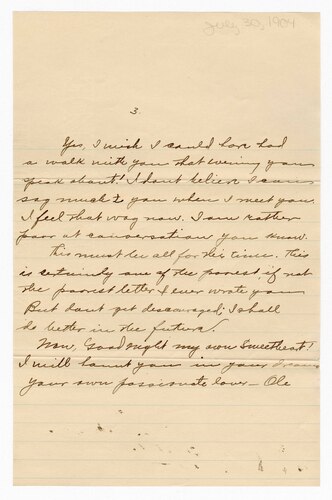 July 30, 1904
3.
Yes, I wish I could have had
a walk with you that evening you
speak about! I dont believe I can
say much to you when I meet you.
I feel that way now. I am rather
poor at conversation you know.
This must be all for this time. This
is certainly one of the poorest if not
the poorest letter I ever wrote you
But dont get discouraged; I shall
do better in the future!
Now, Goodnight my own Sweetheart!
I will haunt you in your dreams
Your own passionate lover – Ole